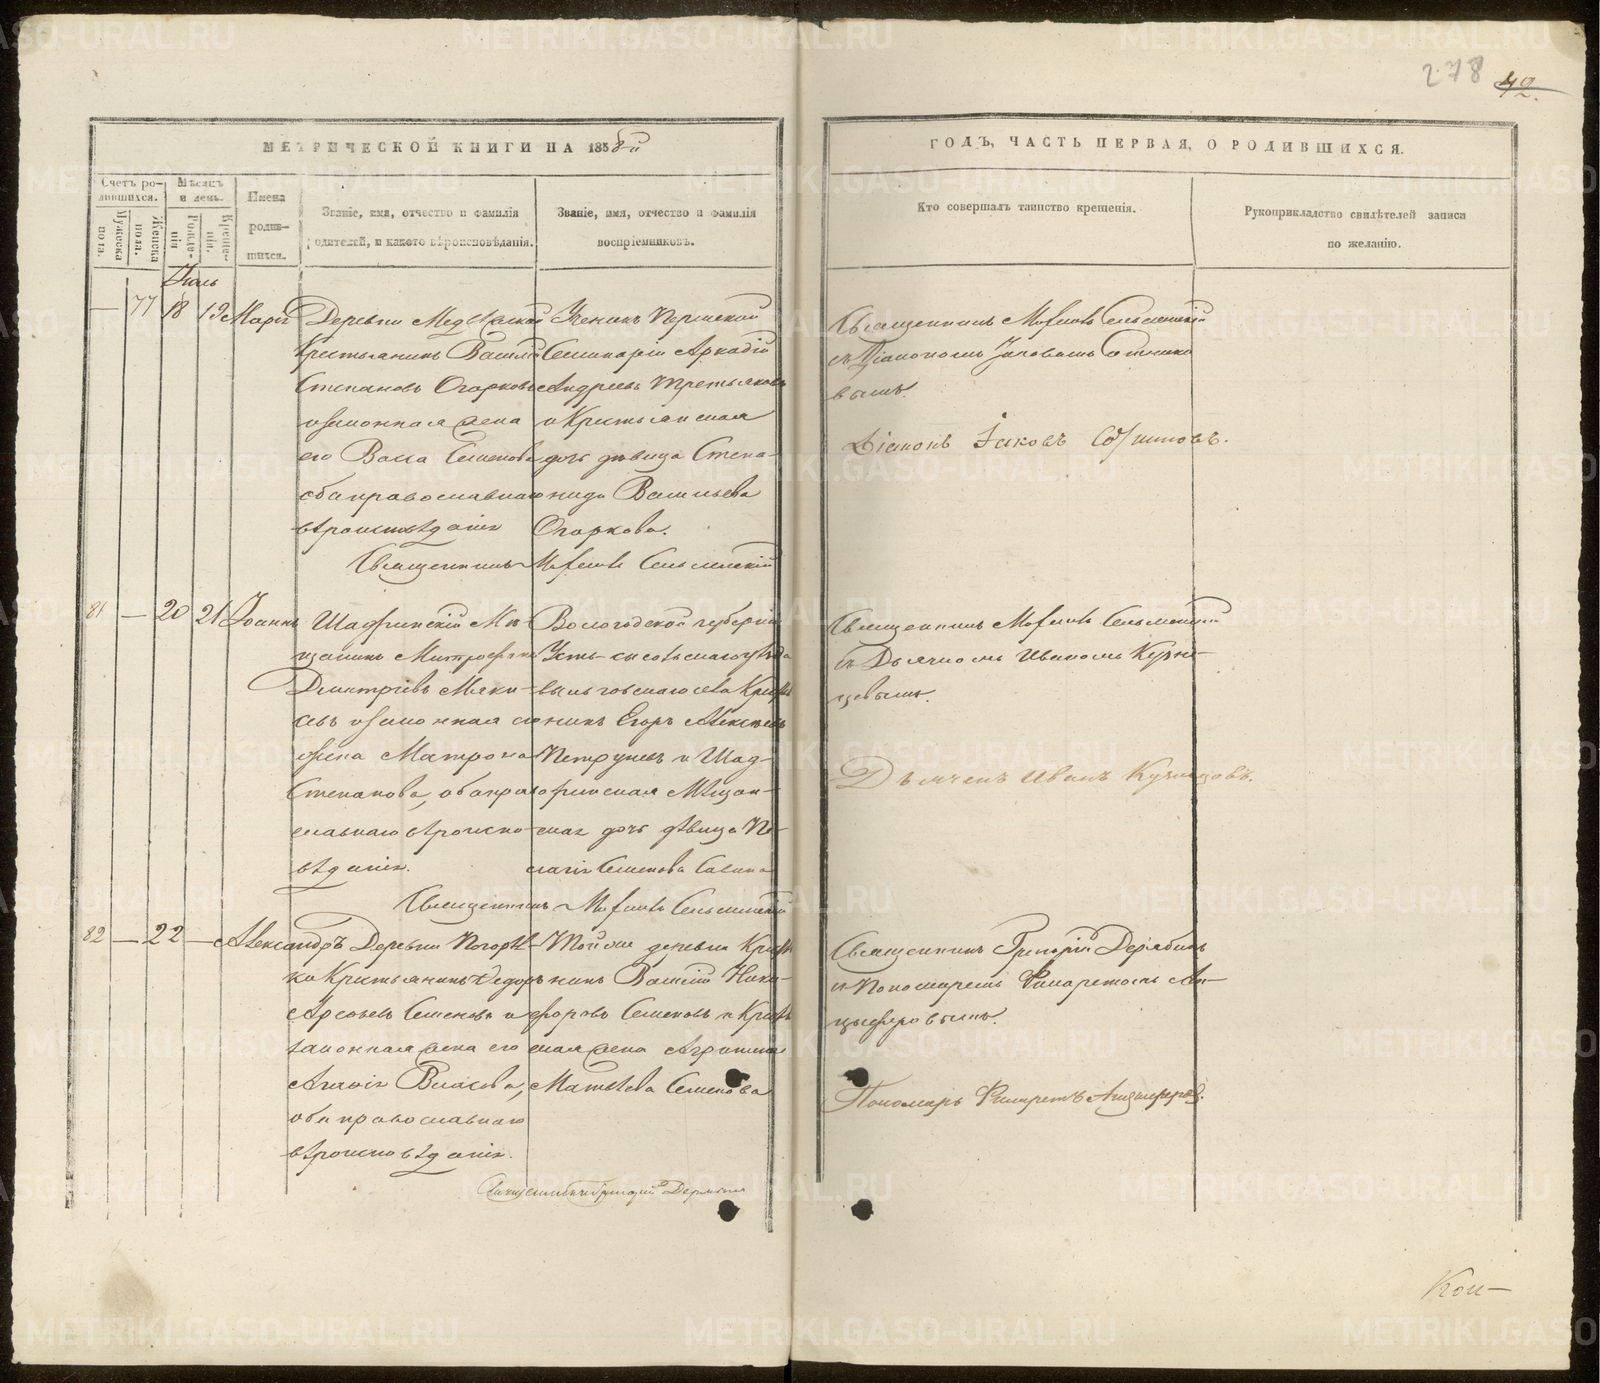 278 42.
МЕТРИЧЕСКОЙ КНИГИ НА 1858й
ГОДЪ, ЧАСТЬ ПЕРВАЯ, О РОДИВШИХСЯ.
Счетъ родившихся.
Мужеска пола.
Женска пола.
Мѣсяцъ и день.
Рожденія
Крещенія.
Имена родившихся.
Званіе, имя, отчество и фамилія родителей, и какого вѣроисповѣданія.
Званіе, имя, отчество и фамилія воспріемниковъ.
Кто совершалъ таинство крещенія.
Рукоприкладство свидѣтелей записи по желанію.
Іюль
— 77 18 19 Марія
Деревни
Крестьянинъ Василій
Степановъ Огарковъ
и законная жена
его Васса Семенова
оба православнаго
вѣроисповѣданія
Ученикъ Пермской
Семинаріи Аркадій
Андреевъ Третьяковъ
и Крестьянская
дочь дѣвица Степа-
нида Васильева
Огаркова.
Священникъ
Священникъ
съ Діакономъ Іаковомъ Сотнико
вымъ.
Діаконъ Іаковъ Сотниковъ.
81 — 20 21 Іоаннъ
Шадринскій Мѣ-
щанинъ Митрофанъ
Дмитріевъ Мяки-
шевъ и законная
жена Матрона
Степанова, оба право
славнаго вѣроиспо-
вѣданія.
Вологодской губерніи
Усть-сысольскаго уѣзда
села Крестья
нинъ Егоръ Алексѣевъ
и Шад-
ринская Мѣщан-
ская дочь дѣвица Пе-
лагія Семенова
Священникъ
Священникъ
съ Дьячкомъ Иваномъ Кузне-
цовымъ.
Дьячекъ Иванъ Кузнецовъ.
82 — 22 — Александръ
Деревни Погорѣл-
ки Крестьянинъ Ѳедоръ
Арсеньевъ Семеновъ и
законная жена его
Агафія Власова,
оба православнаго
вѣроисповѣданія.
Той же деревни Кресть
нинъ Василій Ники-
форовъ Семеновъ и Кресть
ская жена Агрипина
Матвѣева Семенова
Священникъ Григорій Дерябинъ
Священникъ Григорій Дерябинъ
и Пономаремъ Филаретомъ Ан-
цыферовымъ.
Пономарь Филаретъ Анцыферовъ.
Кол-
METRIKI.GASO-URAL.RU